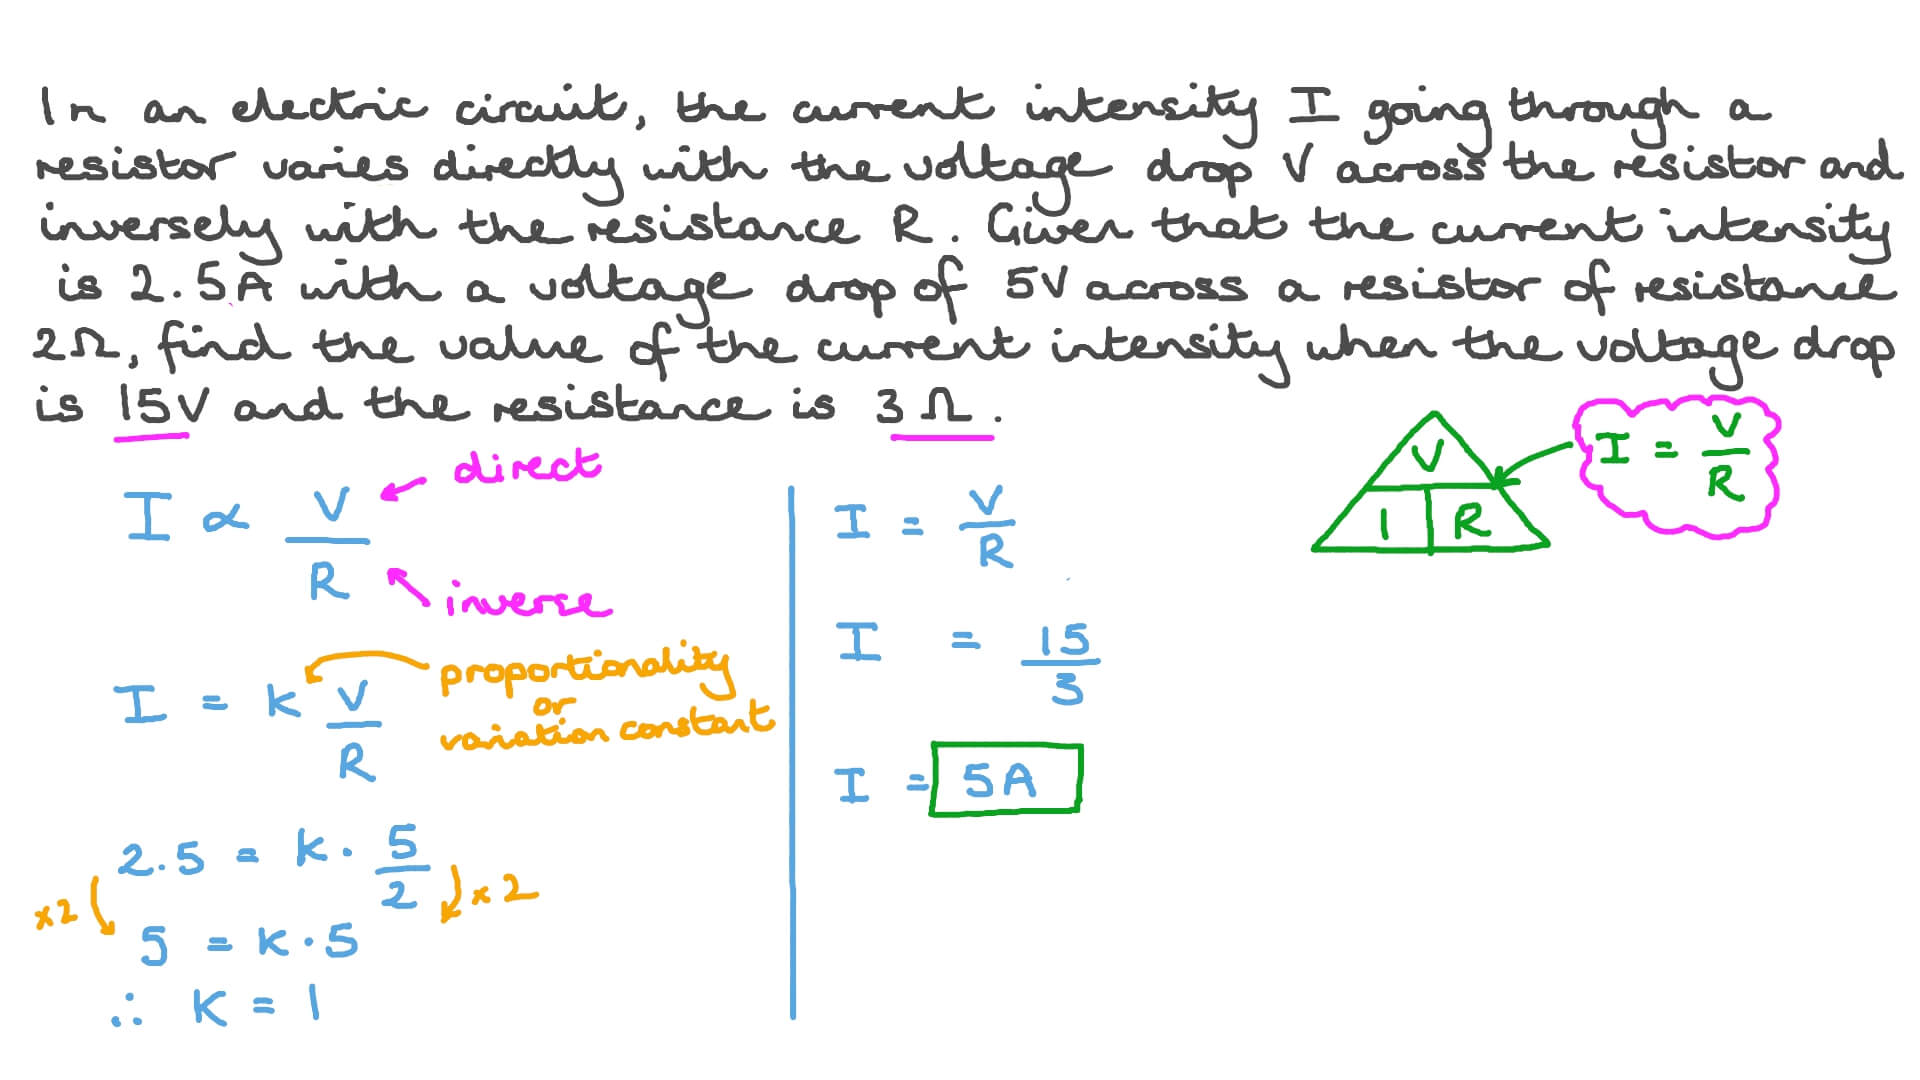 In an electric circuit, the current intensity I going through a
resistor varies directly with the voltage drop V across the resistor and
inversely with the resistance R. Given that the current intensity
is 2.5A with a voltage drop of 5V across a resistor of resistance
2Ω, find the value of the current intensity when the voltage drop
is 15V and the resistance is 3Ω.
I ∝ V/R
direct
inverse
I = k V/R
proportionality
or
variation constant
2.5 = k · 5/2
×2
×2
5 = k · 5
∴ k = 1
I = V/R
I = 15/3
I = 5A
V
I R
I = V/R